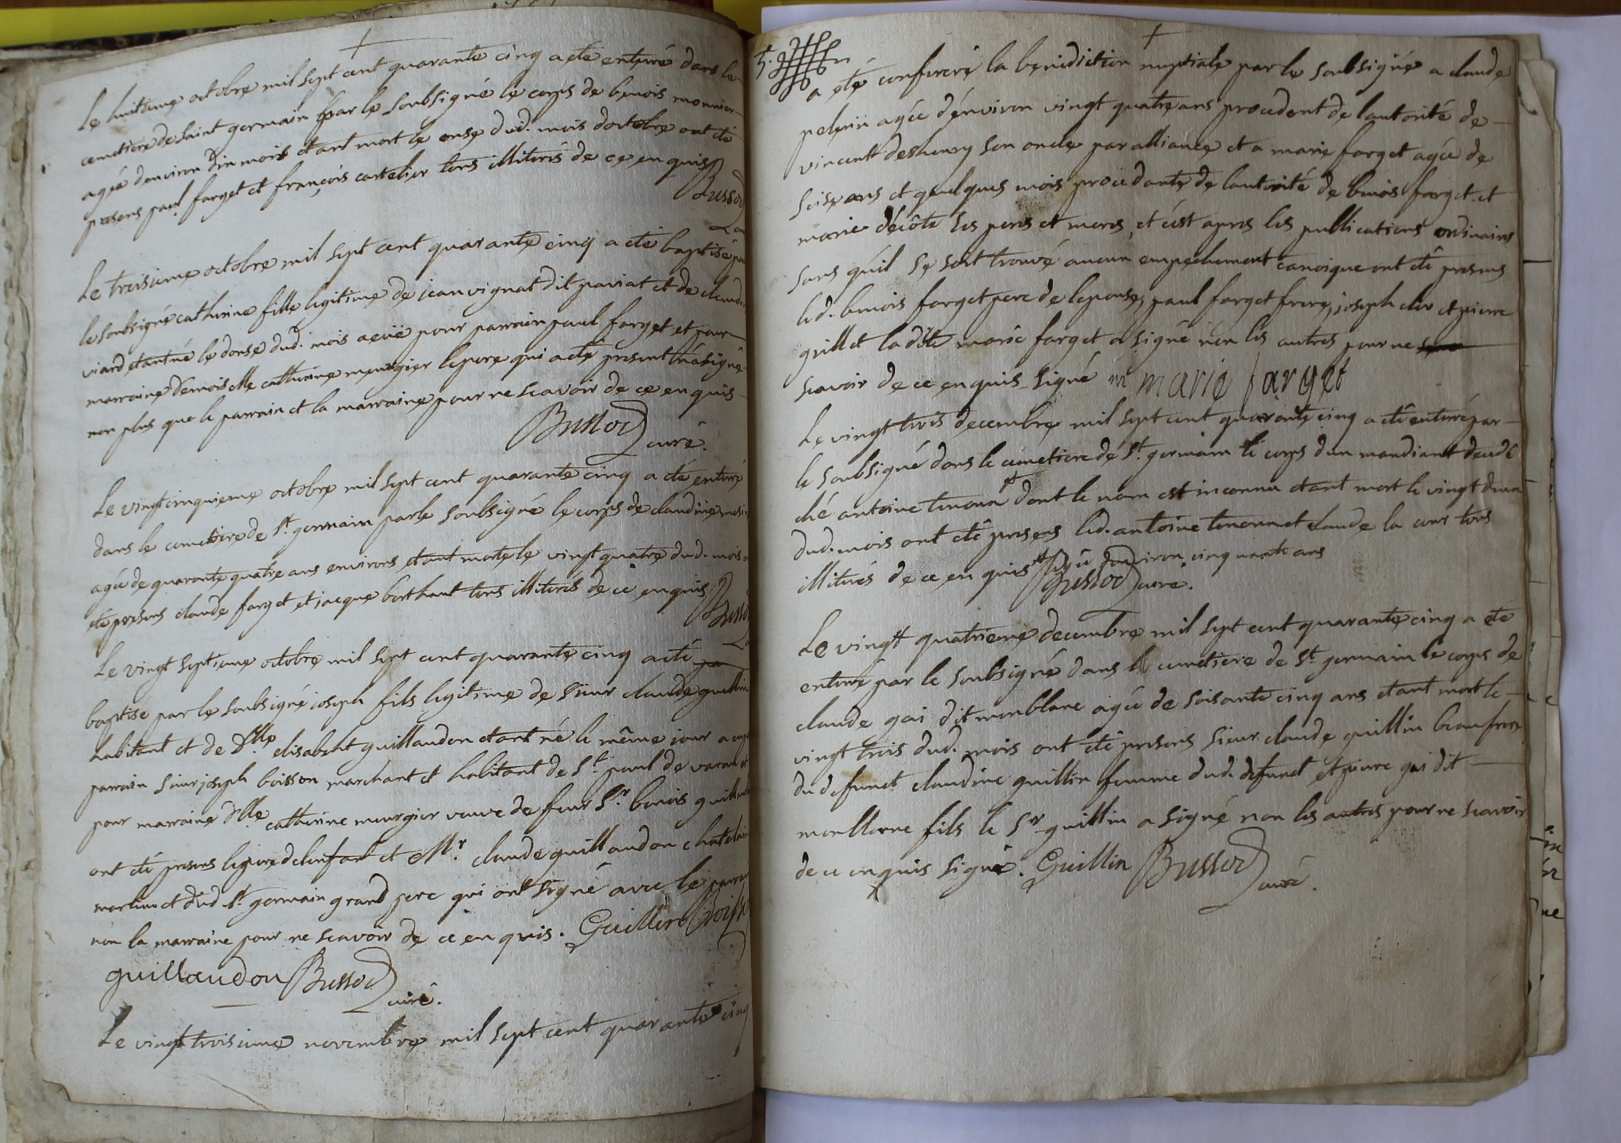 Le huitieme octobre mil sept cent quarante cinq a eté enterré dans le
cemetiere de saint germain par le soubsigné le corps de benois monnier
agée denviron dun mois etant mort le onse dud. mois doctobre ont eté
presens paul farget et françois cartelier tous illiterés de ce enquis
Bussod
Le treisieme octobre mil sept cent quarante cinq a eté baptisé par
le soubsigné catherine fille legitime de jean vignat dit pariat et de claudine
viard etant né le douse dud. mois a eüe pour parrain paul farget et pour
marraine demoiselle catherine meurgier le pere qui a eté present n'a signé
non plus que le parrain et la marraine pour ne scavoir de ce enquis
Bussod
curé.
Le vingt cinquieme octobre mil sept cent quarante cinq a eté enterré
dans le cemetiere de St. germain par le soubsigné le corps de claudine
agée de quarante quatre ans environs etant morte le vingt quatre dud. mois
eté presens claude farget et jacque borthaut tous illiterés de ce enquis
Bussod
Le vingt septieme octobre mil sept cent quarante cinq a eté
baptisé par le soubsigné joseph fils legitime de sieur claude guillin
habitant et de Dlle elisabeht guillaudon etant né le même jour a eu
parrain sieur joseph boisson marchant et habitant de St. paul de
pour marraine Dlle catherine meurgier veuve de feus Sr. benois
ont eté presens le pere de lenfant et Mr. claude guillaudon chatelain
et dud St. germain grand pere qui ont signé avec le parrain
non la marraine pour ne scavoir de ce enquis. Guillin Boisson
guillaudon Bussod
curé.
Le vingt troisieme novembre mil sept cent quarante cinq
a eté conferré la benediction nuptiale par le soubsigné a claude
pelerin agée d'environ vingt quatre ans procedent de lautorité de
vincent deshenry son oncle par alliance et a marie farget agée de
seise ans et quelques mois procedante de lautorité de benois farget et
marie décôte ses peres et meres, et c'est apres les publications ordinaires
sans qu'il se soit trouvé aucun empechement canoique ont eté presens
led. benois farget pere de lepouse, paul farget frere, joseph et pierre
grillet la dite marie farget a signé non les autres pour ne
scavoir de ce enquis signé m marie farget
Le vingt trois decembre mil sept cent quarante cinq a eté enterré par
le soubsigné dans le cemetiere de St. germain le corps dun mandiant
ché antoine tenon dont le nom est inconnu etant mort le vingt deux
dud. mois ont eté presens led. antoine tenon et claude la cour tous
illiterés de ce enquis agé d'environ cinquante ans
Bussod curé.
Le vingt quatrieme decembre mil sept cent quarante cinq a eté
enterré par le soubsigné dans le cemetiere de St. germain le corps de
claude gai dit monblanc agée de soisante cinq ans etant mort le
vingt trois dud. mois ont eté presens sieur claude guillin beaufrere
du defunct claudine guillin femme dud. defunct et pierre gai dit
fils le Sr guillin a signé non les autres pour ne scavoir
de ce enquis signé. Guillin Bussod
curé.